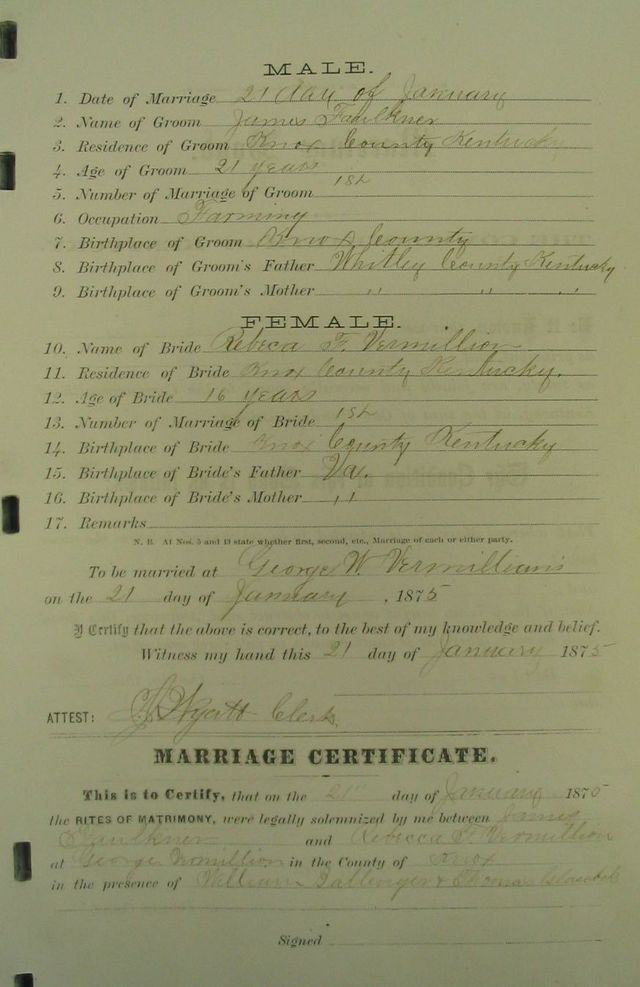 MALE.
1. Date of Marriage 21 day of January
2. Name of Groom James Faulkner
3. Residence of Groom Knox County Kentucky
4. Age of Groom 21 years
5. Number of Marriage of Groom 1st
6. Occupation Farming
7. Birthplace of Groom Knox County
8. Birthplace of Groom's Father Whitley County Kentucky
9. Birthplace of Groom's Mother " " "
FEMALE.
10. Name of Bride Rebeca F. Vermillion
11. Residence of Bride Knox County Kentucky.
12. Age of Bride 16 years
13. Number of Marriage of Bride 1st
14. Birthplace of Bride Knox County Kentucky
15. Birthplace of Bride's Father Va.
16. Birthplace of Bride's Mother "
17. Remarks
N. B. At Nos. 5 and 13 state whether first, second, etc., Marriage of each or either party.
To be married at George W. Vermillians
on the 21 day of January, 1875
I Certify that the above is correct, to the best of my knowledge and belief.
Witness my hand this 21 day of January 1875
ATTEST: Wyatt Clerk
MARRIAGE CERTIFICATE.
This is to Certify, that on the 21" day of January 1875
the RITES OF MATRIMONY, were legally solemnized by me between James
Faulkner and Rebecca F. Vermillion
at George Vermillion in the County of Knox
in the presence of William & Thomas
Signed